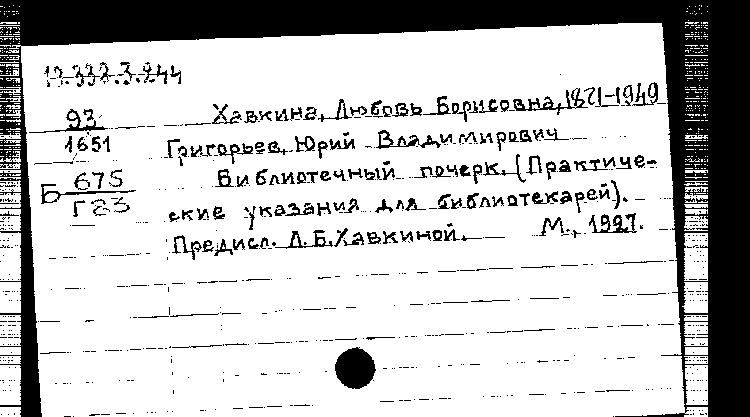 19.332.3.244
93 Хавкина, Любовь Борисовна, 1871-1949
1651 Григорьев, Юрий Владимирович
Б 675 Библиотечный почерк. (Практиче-
Г83 ские указания для библиотекарей).
Предисл. Л.Б.Хавкиной. М., 1927.